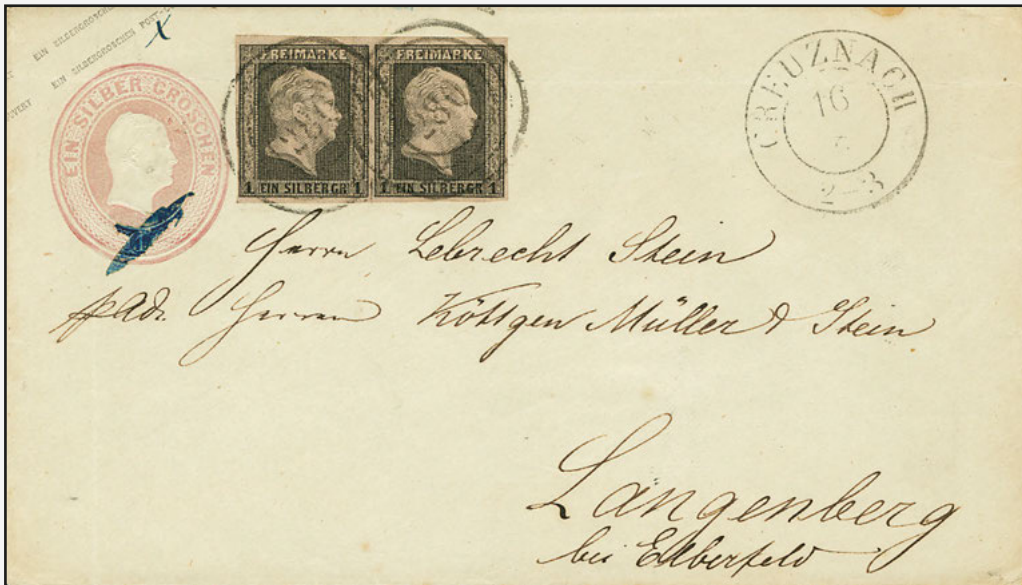 EIN SILBERGROSCHEN
EIN SILBERGROSCHEN POST-
X
EIN SILBER GROSCHEN
FREIMARKE
1 EIN SILBERGR 1
FREIMARKE
1 EIN SILBERGR 1
CREUZNACH
16
2-3
Herrn Lebrecht Stein
Adr. Herren Köttgen Müller & Stein
Langenberg
bei Elberfeld